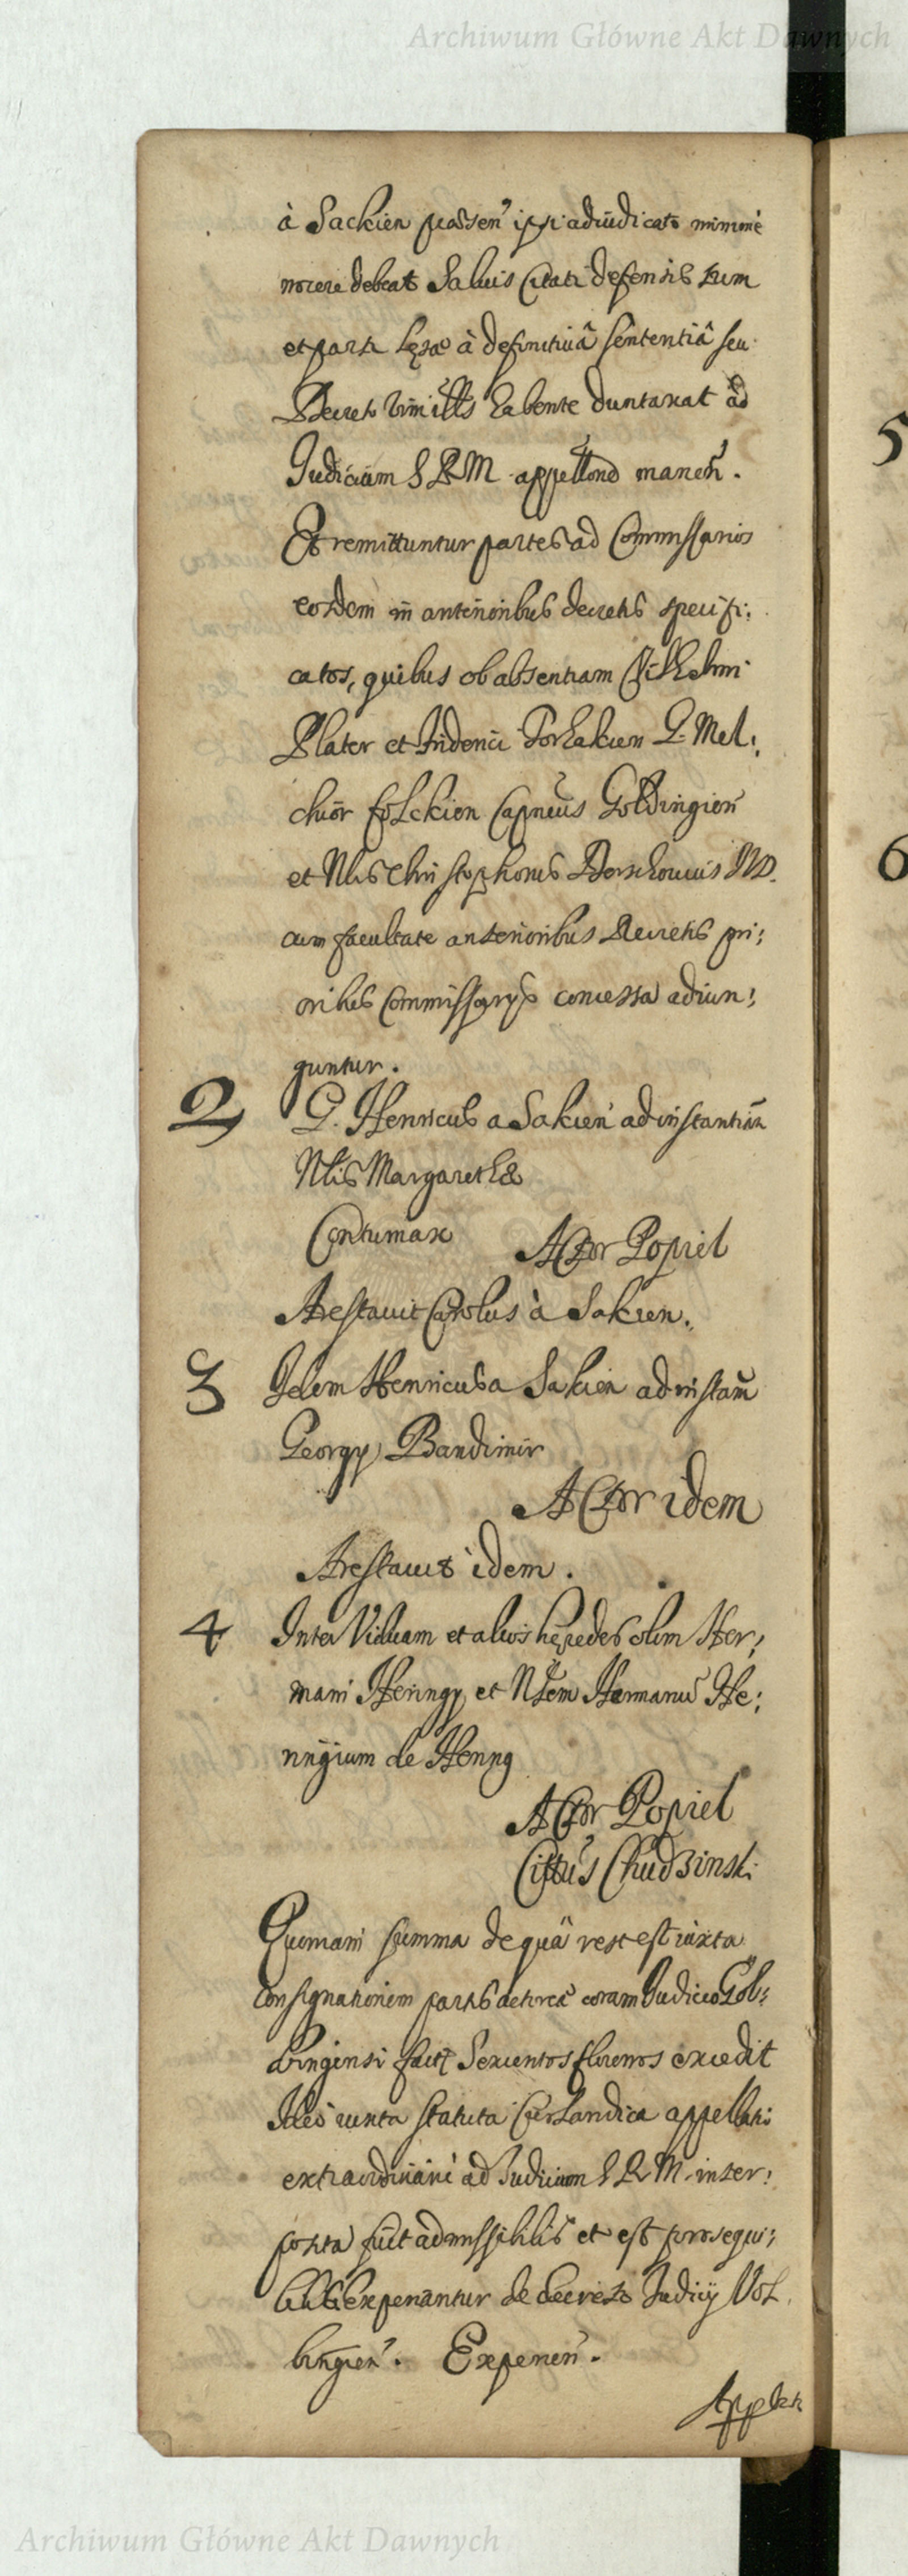 Archiwum Główne Akt Dawnych
à Sackien possen̄ ipsi adiudicato minimè
nocere debeat Salvis Citati defensis tum
et parti lęsæ à definitivâ sententiâ seu
Decreto vim illīs habente duntaxat ad
Judicium S R M appellond manen̄.
Et remittuntur partes ad Commissarios
eosdem in anterioribus decretis specifi:
catos, quibus ob absentiam Vilhelmi
Plater et Friderici G. Mel:
chior Folckien Capneus Goldingien̄
et Nlis Christophorus ND.
cum facultate anterioribus Decretis pri:
oribus Commissarys concessa adiun:
guntur.
2 G. Henricus a Sakien ad instantiam
Nlis Margarethæ
Contumax Actor Popiel
Arestavit Carolus à Sakien.
3 Idem Henricus a Sakien ad instam
Georgy Bandimir
Actor idem
Arestavit idem.
4 Inter Viduam et alios hęredes olim Her:
mani Heringy et Nlem Hermanū He:
ringium de Hering
Actor Popiel
Cittus Chudzinski
Quoniam summa de quâ rest est iuxta
consignationem partis actoreæ coram Judicio Gol:
dingensi factę Sexcentos florenos excedit
Ideo iuxta statuta Curlandica appellatio
extraordinarie ad Judicium S R M inter:
posita fuit admissibilis et est prosequi:
bilis Expenantur de decreto Judicij Gol
dingien̄. Expenen̄.
5
6
Archiwum Główne Akt Dawnych